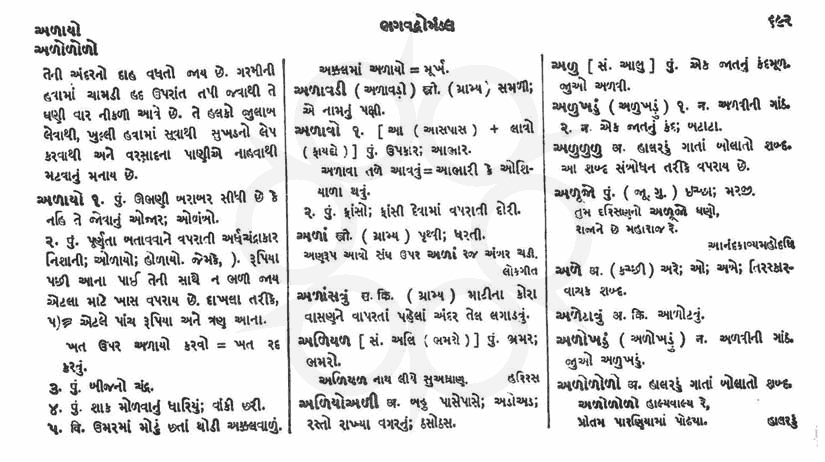 અળાયો
અળોળોળો
ભગવદ્ગોમંડલ
૬૯૨
તેની અંદરનો દાહ વધતો જાય છે. ગરમીની
હવામાં ચામડી હદ ઉપરાંત તપી જવાથી તે
ઘણી વાર નીકળી આવે છે. તે હલકો જુલાબ
લેવાથી, ખુલ્લી હવામાં સૂવાથી સુખડનો લેપ
કરવાથી અને વરસાદના પાણીએ નાહવાથી
મટવાનું મનાય છે.
અળાયો ૧. પું. ઊભણી બરાબર સીધી છે કે
નહિ તે જોવાનું ઓજાર; ઓળંબો.
૨. પું. પૂર્ણતા બતાવવાને વપરાતી અર્ધચંદ્રાકાર
નિશાની; ઓળાયો; હોળાયો. જેમકે, ). રૂપિયા
પછી આના પાઈ તેની સાથે ન ભળી જાય
એટલા માટે ખાસ વપરાય છે. દાખલા તરીકે,
એટલે પાંચ રૂપિયા અને ત્રણ આના.
ખત ઉપર અળાયો કરવો = ખત રદ
કરવું.
૩. પું. બીજનો ચંદ્ર.
૪. પું. શાક મોળવાનું ધારિયું; વાંકી છરી.
૫. વિ. ઉમરમાં મોટું છતાં થોડી અક્કલવાળું.
અક્કલમાં અળાયો = મૂર્ખ.
અળાવડી (અળાવડ઼ી) સ્ત્રી. (ગ્રામ્ય) સમળી;
એ નામનું પક્ષી.
અળાવો ૧. [ આ (આસપાસ) + લાવો
(ફાયદો) ] પું. ઉપકાર; આભાર.
અળાવા તળે આવવું = આભારી કે ઓશિ-
યાળા થવું.
૨. પું. ફાંસો; ફાંસી દેવામાં વપરાતી દોરી.
અળાં સ્ત્રી. (ગ્રામ્ય) પૃથ્વી; ધરતી.
અણરૂપ આવો સંધ ઉપર અળાં રજ અંબર ચડી.
લોકગીત
અળાંસવું સ. ક્રિ. (ગ્રામ્ય) માટીના કોરા
વાસણને વાપરતાં પહેલાં અંદર તેલ લગાડવું.
અળિયળ [ સં. અલિ (ભમરો) ] પું. ભ્રમર;
ભમરો.
અળિયળ નાય લીયે સુઅઘ્રાણુ. હરિરસ
અળિયોઅળી અ. બહુ પાસેપાસે; અડોઅડ;
રસ્તો રાખ્યા વગરનું; ઠસોઠસ.
અળુ [ સં. આલુ ] પું. એક જાતનું કંદમૂળ.
જુઓ અળવી.
અળુખડું (અળુખડ઼ું) ૧. ન. અળવીની ગાંઠ.
૨. ન. એક જાતનું કંદ; બટાટા.
અળુળુળુ અ. હાલરડું ગાતાં બોલાતો શબ્દ.
આ શબ્દ સંબોધન તરીકે વપરાય છે.
અળૂજો પું. (જૂ. ગુ.) ઇચ્છા; મરજી.
તુમ દરિસણનો અળૂજો ઘણો,
રાજને છે મહારાજ રે.
આનંદકાવ્યમહોદધિ
અળે અ. (કચ્છી) અરે; ઓ; અબે; તિરસ્કાર-
વાચક શબ્દ.
અળેટાવું અ. ક્રિ. આળોટવું.
અળોખડું (અળોખડ઼ું) ન. અળવીની ગાંઠ.
જુઓ અળુખડું.
અળોળોળો અ. હાલરડું ગાતાં બોલાતો શબ્દ.
અળોળોળો હાલ્યવાલ્ય રે,
પ્રીતમ પારણિયામાં પોઢયા. હાલરડું